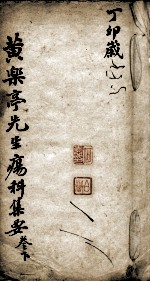 丁卯歲
黃樂亭先生瘍科集要卷下